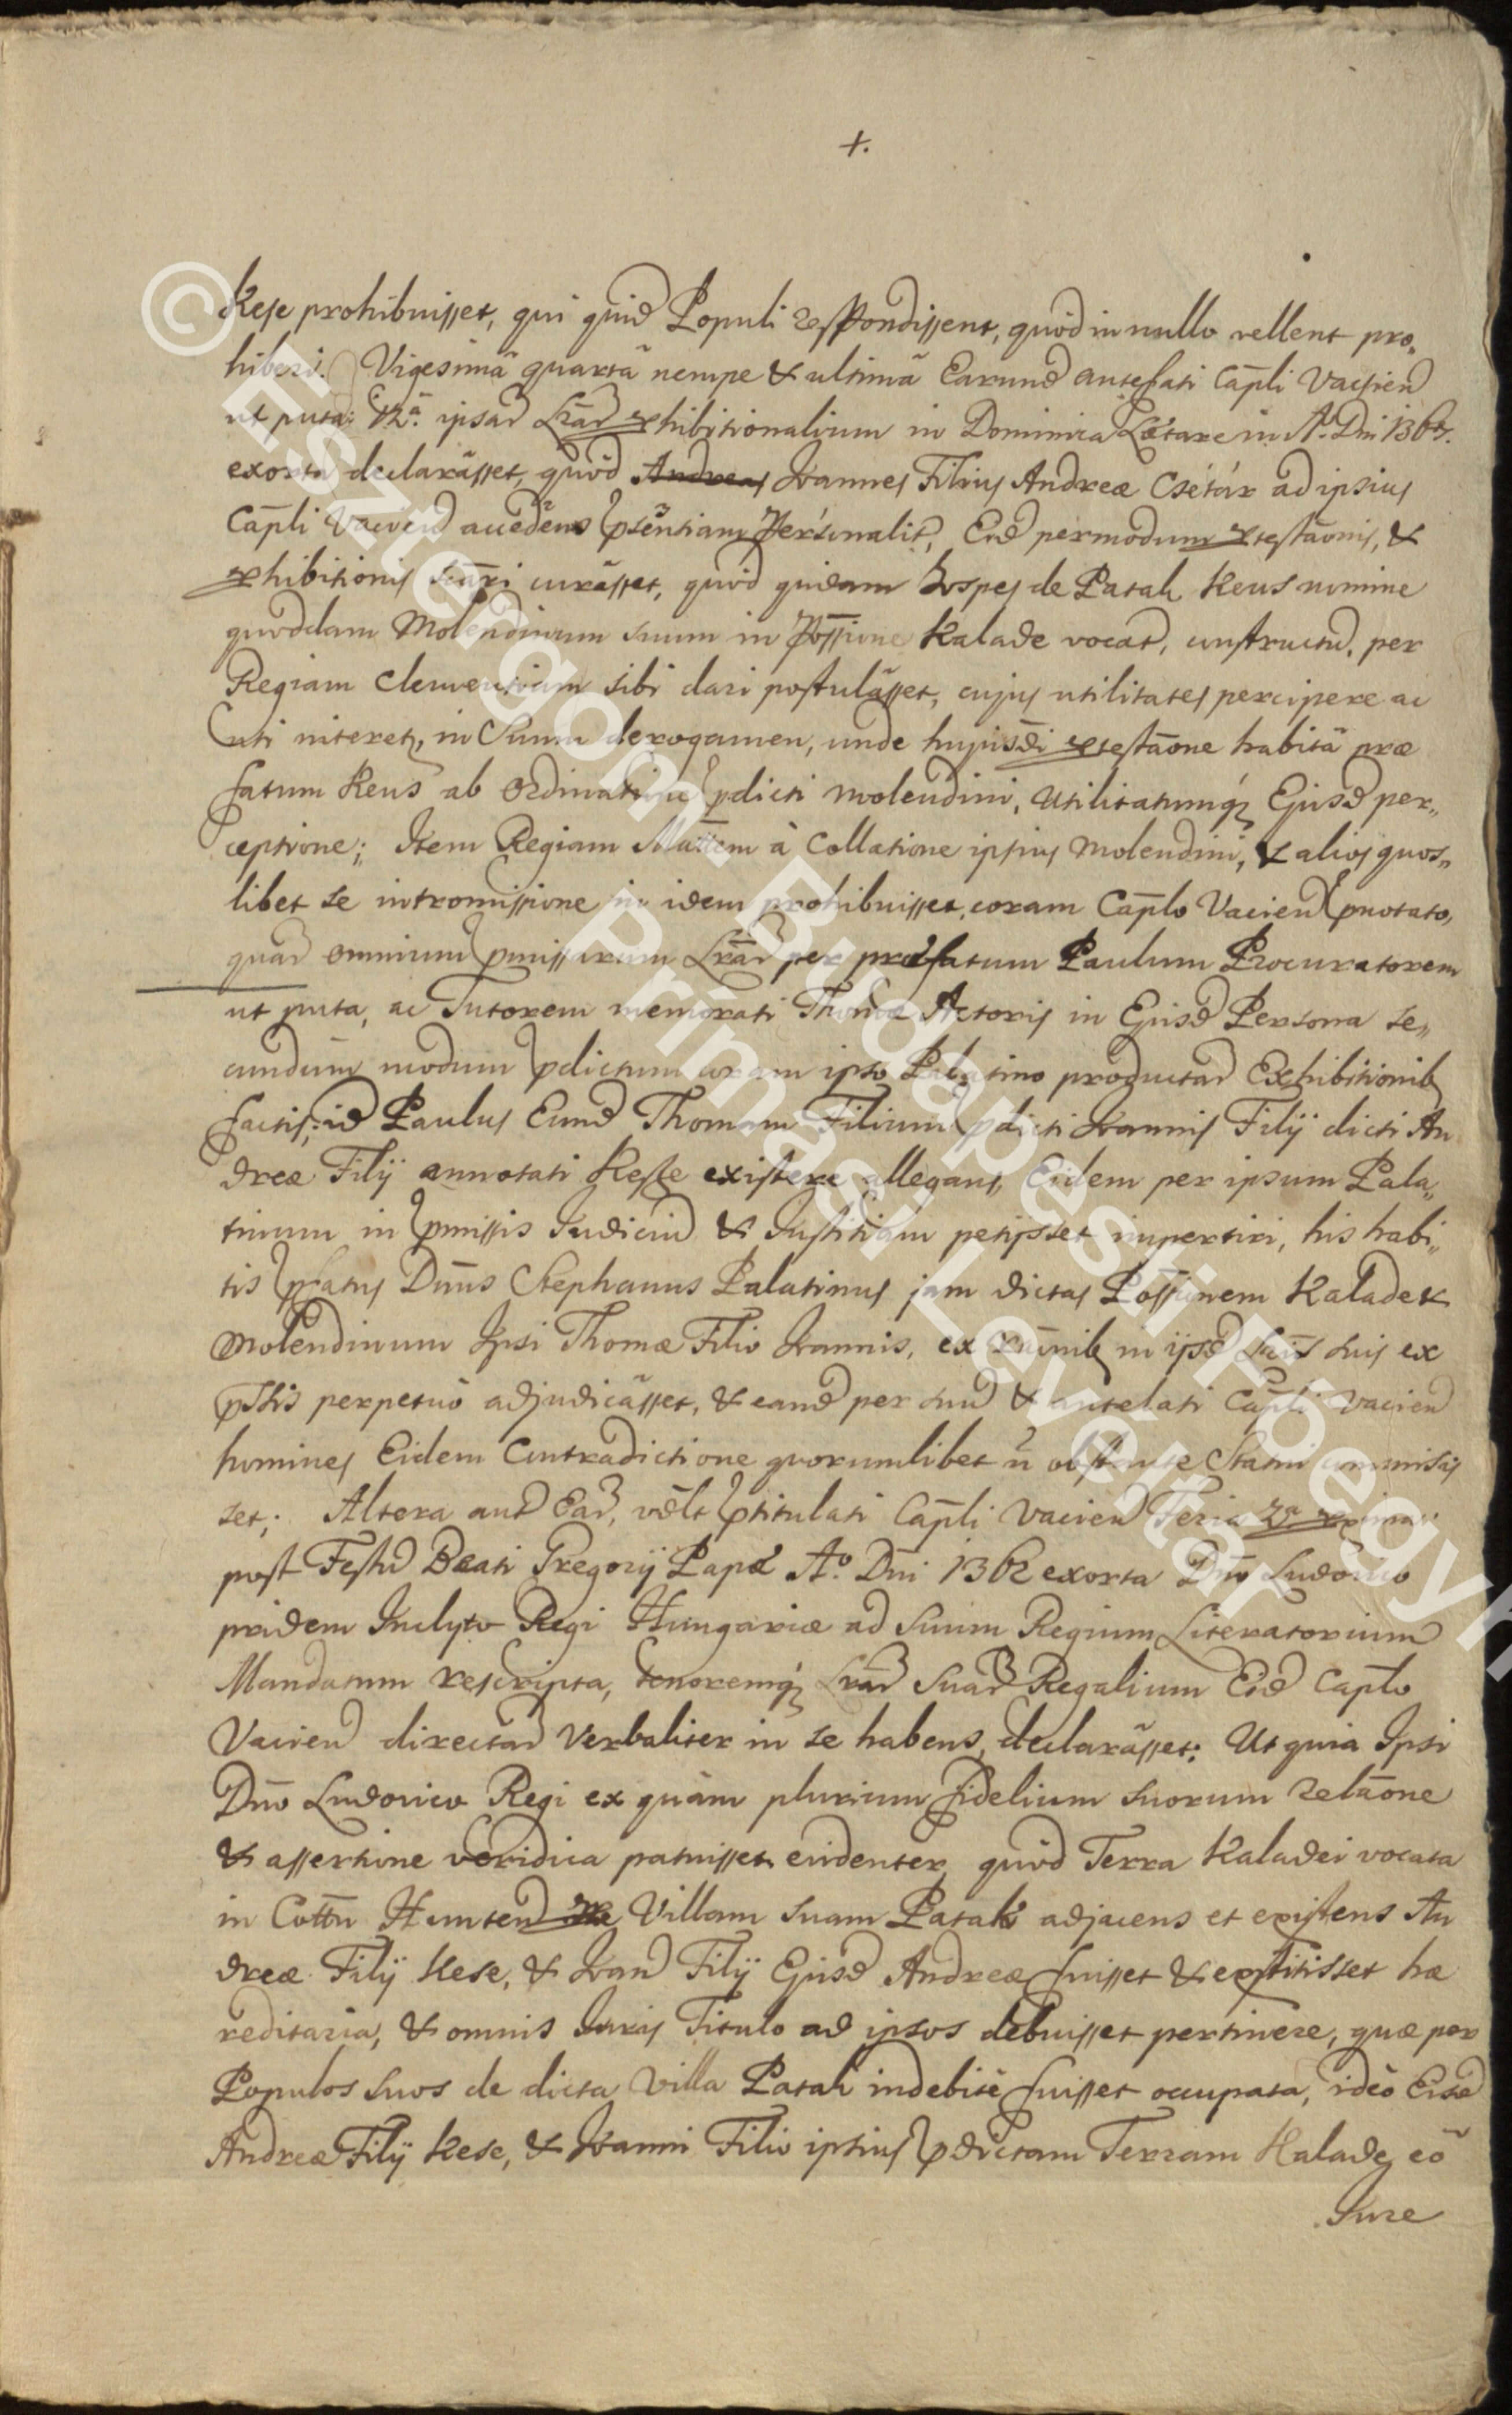 +.
Kese prohibuisset, qui quid Populi respondissent, quòd in nullo vellent pro„
hiberi. Vigesimâ quartâ nempe & ultimâ Earund antefati Capli Vacien
ut puta: 12ª ipsar Lrar prohibitionalium in Dominica Lætare in Aº Dni 136
exorta declarâsset, quòd Andreas Joannes Filius Andreæ Csétár ad ipsius
Capli Vacien accedens pnsentiam Personalit, Eid per modum ptestaonis, &
phibitionis scari curâsset, quòd quidam Hospes de Patak Keus nomine
quoddam Molendinum suum in Possione Kalade vocat, constructu, per
Regiam Clementiam sibi dari postulâsset, cujus utilitates percipere ac
uti niteret, in Suum derogamen, unde hujusdi ptestaone habitâ præ
fatum Keus ab Ordinatione pdicti molendini, Utilitatumq Ejusd per„
ceptione; Item Regiam Mattem à Collatione ipsius Molendini, & alios quos„
libet se intromissione in idem prohibuisset, coram Caplo Vacien pnotato,
quar omnium pmissorum Lrar per præfatum Paulum Procuratorem
ut puta, ac Tutorem memorati Thomæ Actoris in Ejusd Persona se„
cundum modum pdictum coram ipso Palatino productar Exhibitionib
factis; id Paulus Eund Thomam Filium pdicti Joannis Filij dicti An
dreæ Filij annotati Kesse existere allegans, Eidem per ipsum Pala„
tinum in pmissis Judiciu & Justitiam petijsset impertiri, his habi„
tis pfatus Dnus Stephanus Palatinus jam dictas Possionem Kalade &
Molendinum Ipsi Thomæ Filio Joannis, ex raonib in ijsd Lris suis ex
pssis perpetuò adjudicâsset, & eand per suu & antelati Capli Vacien
homines Eidem Contradictione quorumlibet n obstante Statui commisis
set; Altera aut Ear, velt ptitulati Capli Vacien Feria 2ª proxima
post Festu Beati Gregorij Papæ Aº Dni 1362 exorta Dno Ludovico
pridem Inclyto Regi Hungariæ ad Suum Regium Literatorium
Mandatum rescripta, tenoremq Lrar Suar Regalium Eid Caplo
Vacien directar Verbaliter in se habens, declarâsset: Ut quia Ipsi
Dno Ludovico Regi ex quàm plurium fidelium suorum relaone
& assertione veridica patuisset evidenter, quòd Terra Kaladei vocata
in Cottu Honten Villam suam Patak adjacens et existens An
dreæ Filij Kese, & Joan Filij Ejusd Andreæ fuisset & extitisset hæ
reditaria, & omnis Juris Titulo ad ipsos debuisset pertinere, quæ per
Populos suos de dicta Villa Patak indebitè fuisset occupata, ideò Eisd
Andreæ Filij Kese, & Joanni Filio ipsius pdictam Terram Kalade eô
Jure
© Esztergom-Budapesti Főegyh
Prímási Levéltár